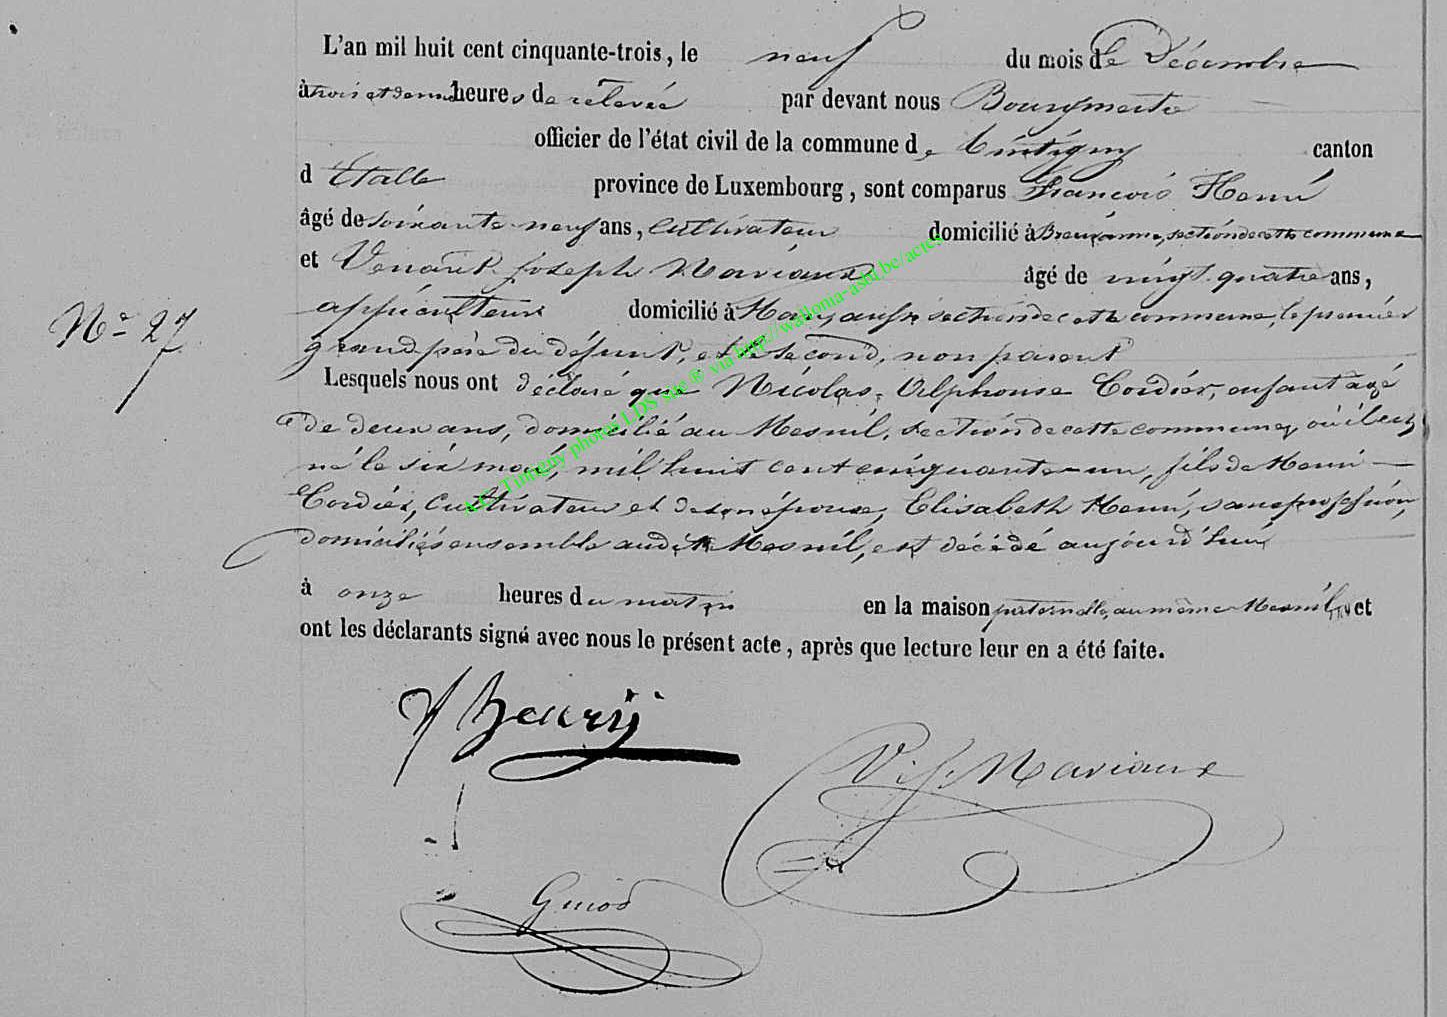 L'an mil huit cent cinquante-trois, le neuf du mois de Décembre
à trois et demi heures de relevée par devant nous Bourgmestre
officier de l'état civil de la commune de Tintigny canton
d Etalle province de Luxembourg, sont comparus François Henri
âgé de soixante neuf ans, cultivateur domicilié à Breuvanne, section de cette commune
et Venant Joseph Naviaux âgé de vingt quatre ans,
domicilié à section de cette commune, le premier
grand père du défunt, et le second, non parent
N° 27
Lesquels nous ont déclaré que Nicolas, Alphonse Cordier, enfant agé
de deux ans, domicilié au Mesnil, section de cette commune, où il est
né le six mai, mil huit cent cinquante-un, fils de Henri
Cordier, Cultivateur et de son épouse, Elisabeth Henri, sans profession,
domiciliés ensemble audit Mesnil, est décédé aujourd'hui
à onze heures du matin en la maison paternelle, au même Mesnil, et
ont les déclarants signé avec nous le présent acte, après que lecture leur en a été faite.
f henrij
V. J. Naviaux
Guiod
A.G. Tintigny photos LDS site ® via http://wallonia-asbl.be/actes